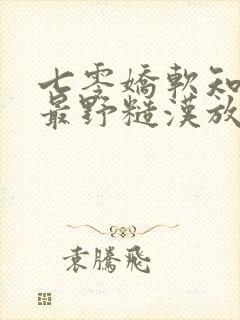 七零嬌軟知
最野糙漢放
袁騰飛